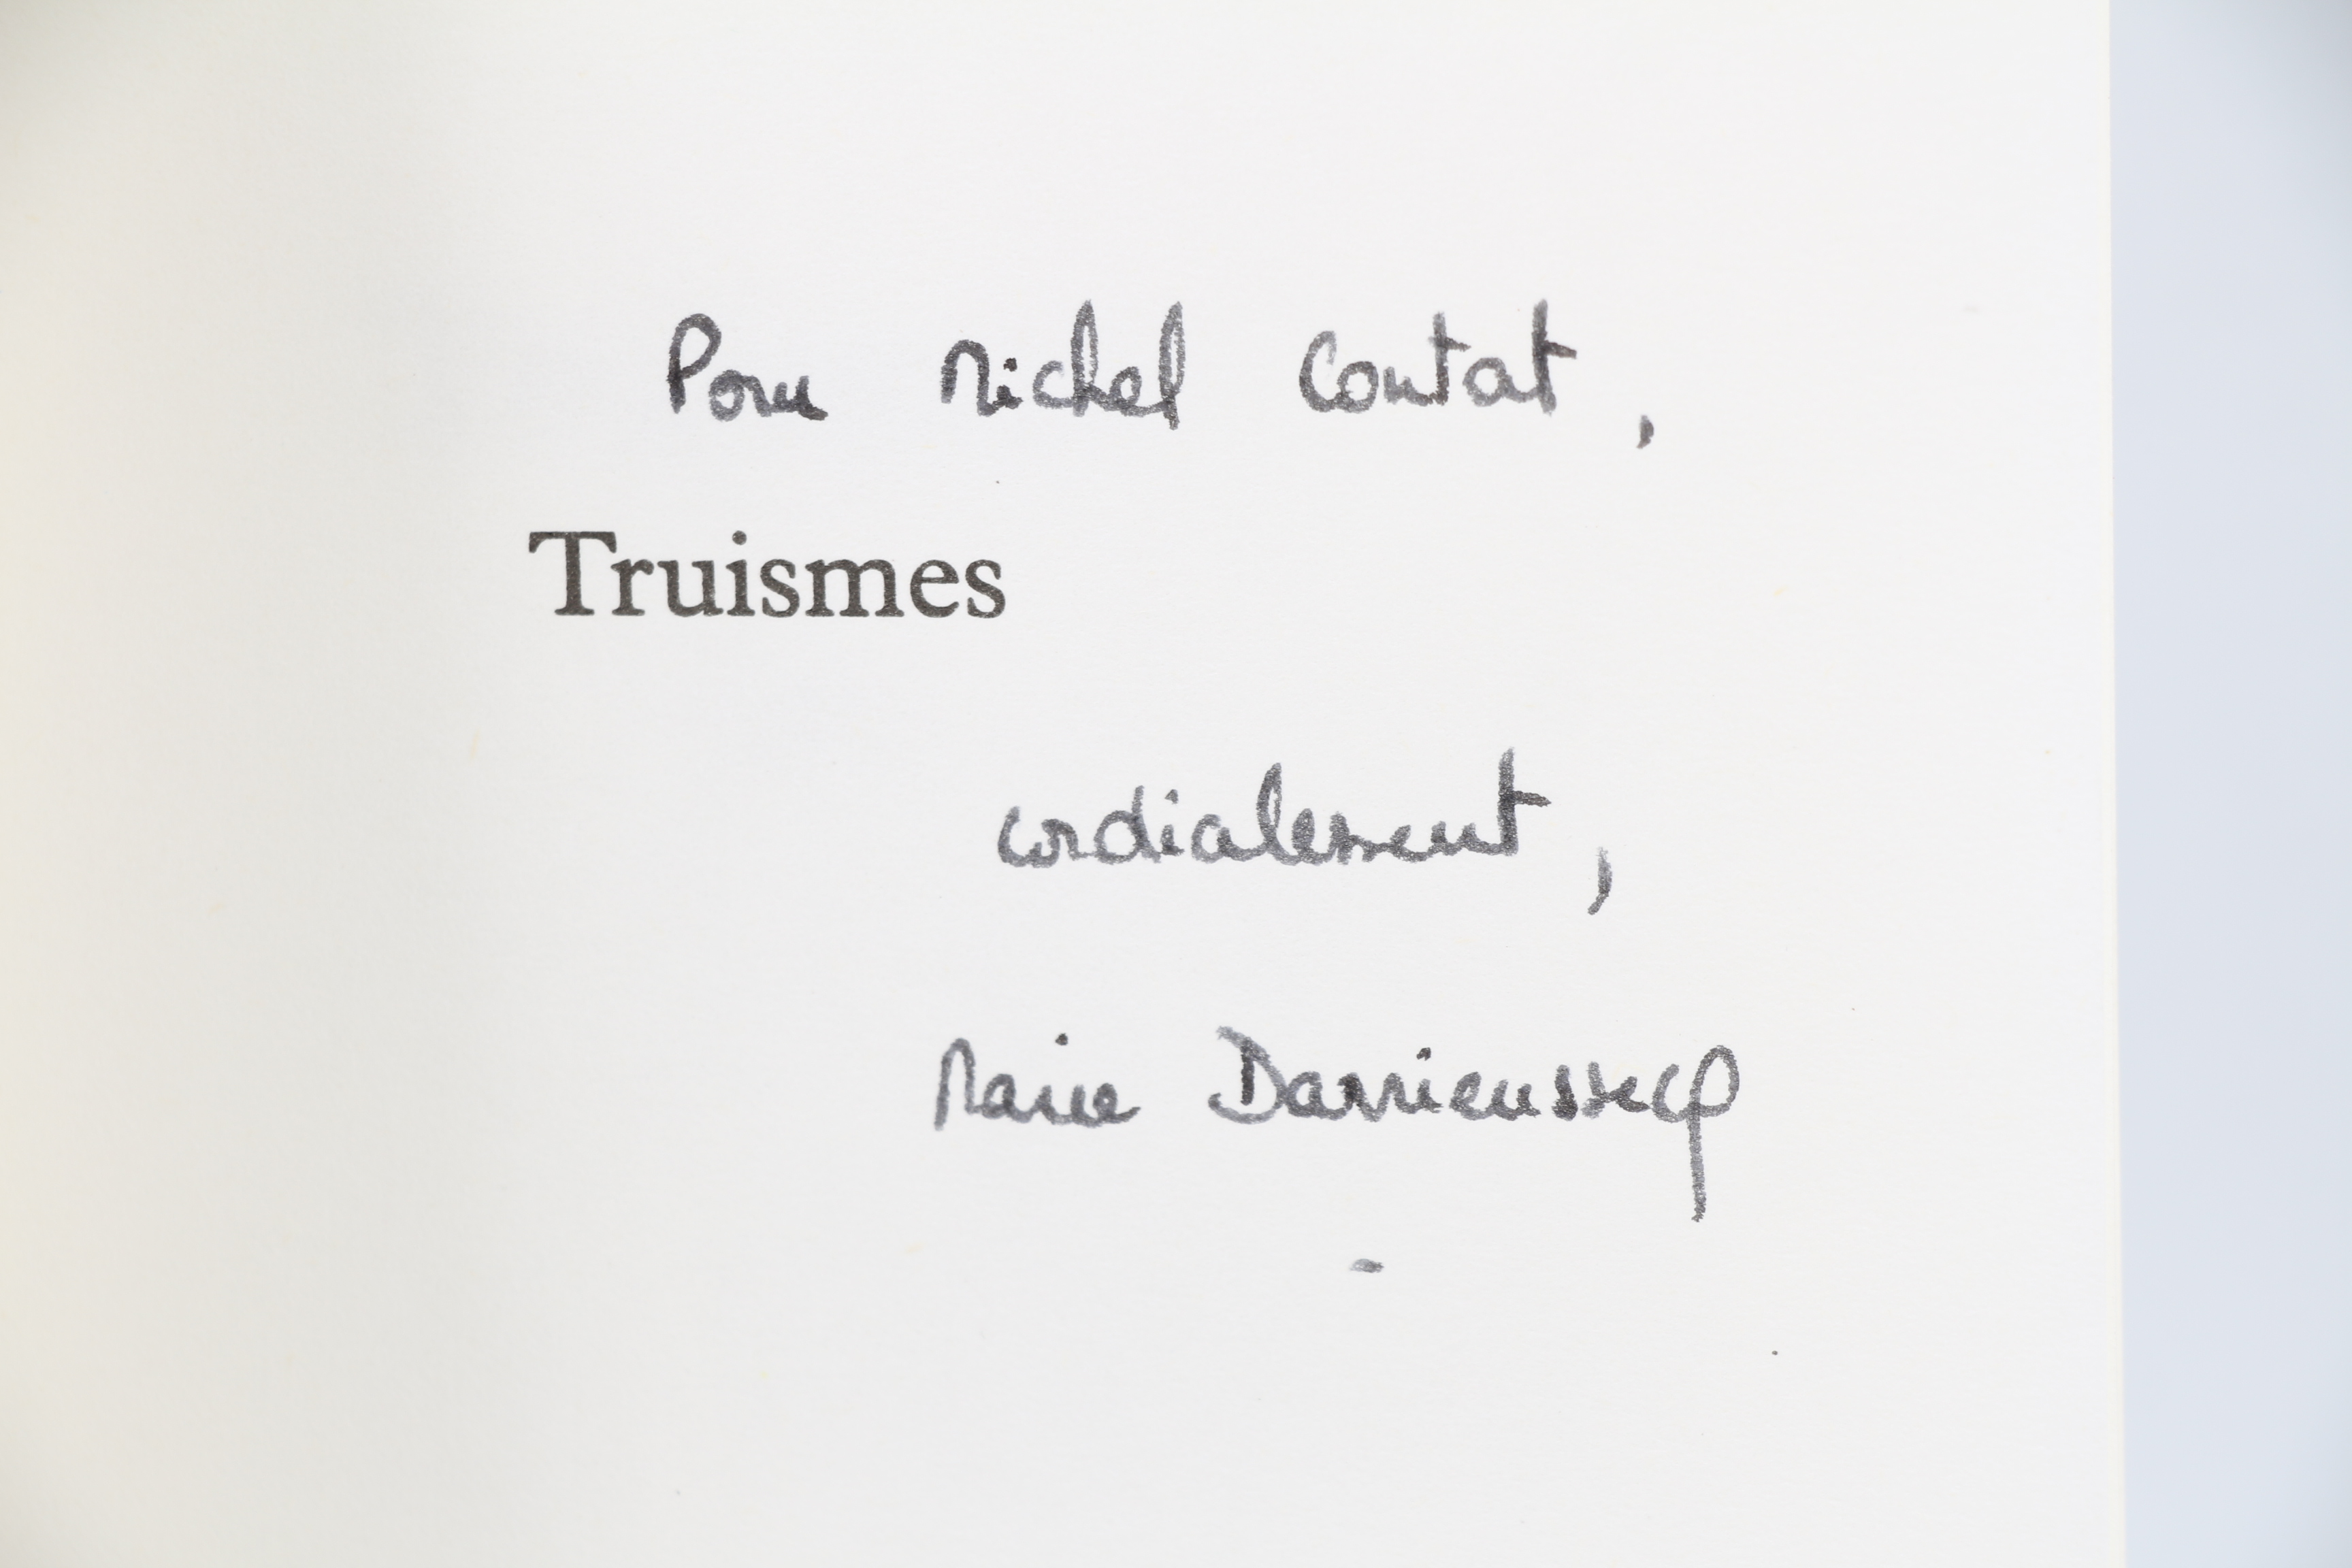 Pour Michel Contat,
Truismes
cordialement,
Marie Darrieussecq